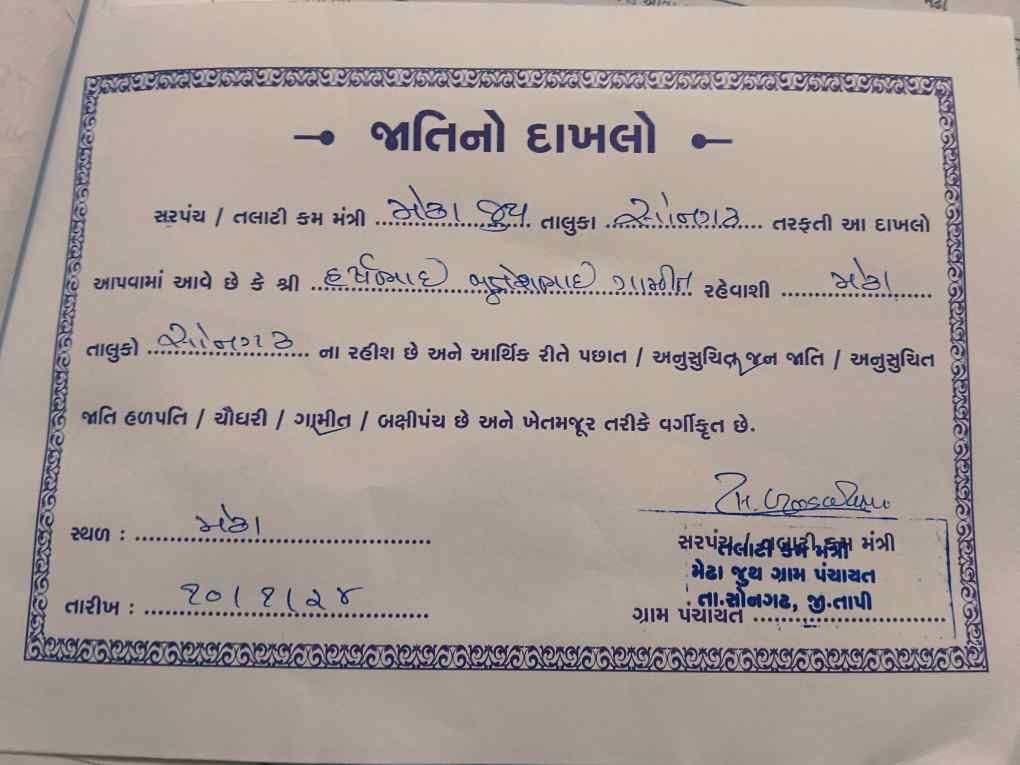 જાતિનો દાખલો
સરપંચ / તલાટી કમ મંત્રી મેઢા જુથ તાલુકા સોનગઢ તરફતી આ દાખલો
આપવામાં આવે છે કે શ્રી ગામીત રહેવાશી મેઢા
તાલુકો સોનગઢ ના રહીશ છે અને આર્થિક રીતે પછાત / અનુસુચિત જન જાતિ / અનુસુચિત
જાતિ હળપતિ / ચૌધરી / ગામીત / બક્ષીપંચ છે અને ખેતમજૂર તરીકે વર્ગીકૃત છે.
સ્થળ : મેઢા
સરપંચ / તલાટી કમ મંત્રી
તલાટી કમ મંત્રી
મેઢા જુથ ગ્રામ પંચાયત
તારીખ : ૧૦/૧/૨૪
તા.સોનગઢ, જી.તાપી
ગ્રામ પંચાયત